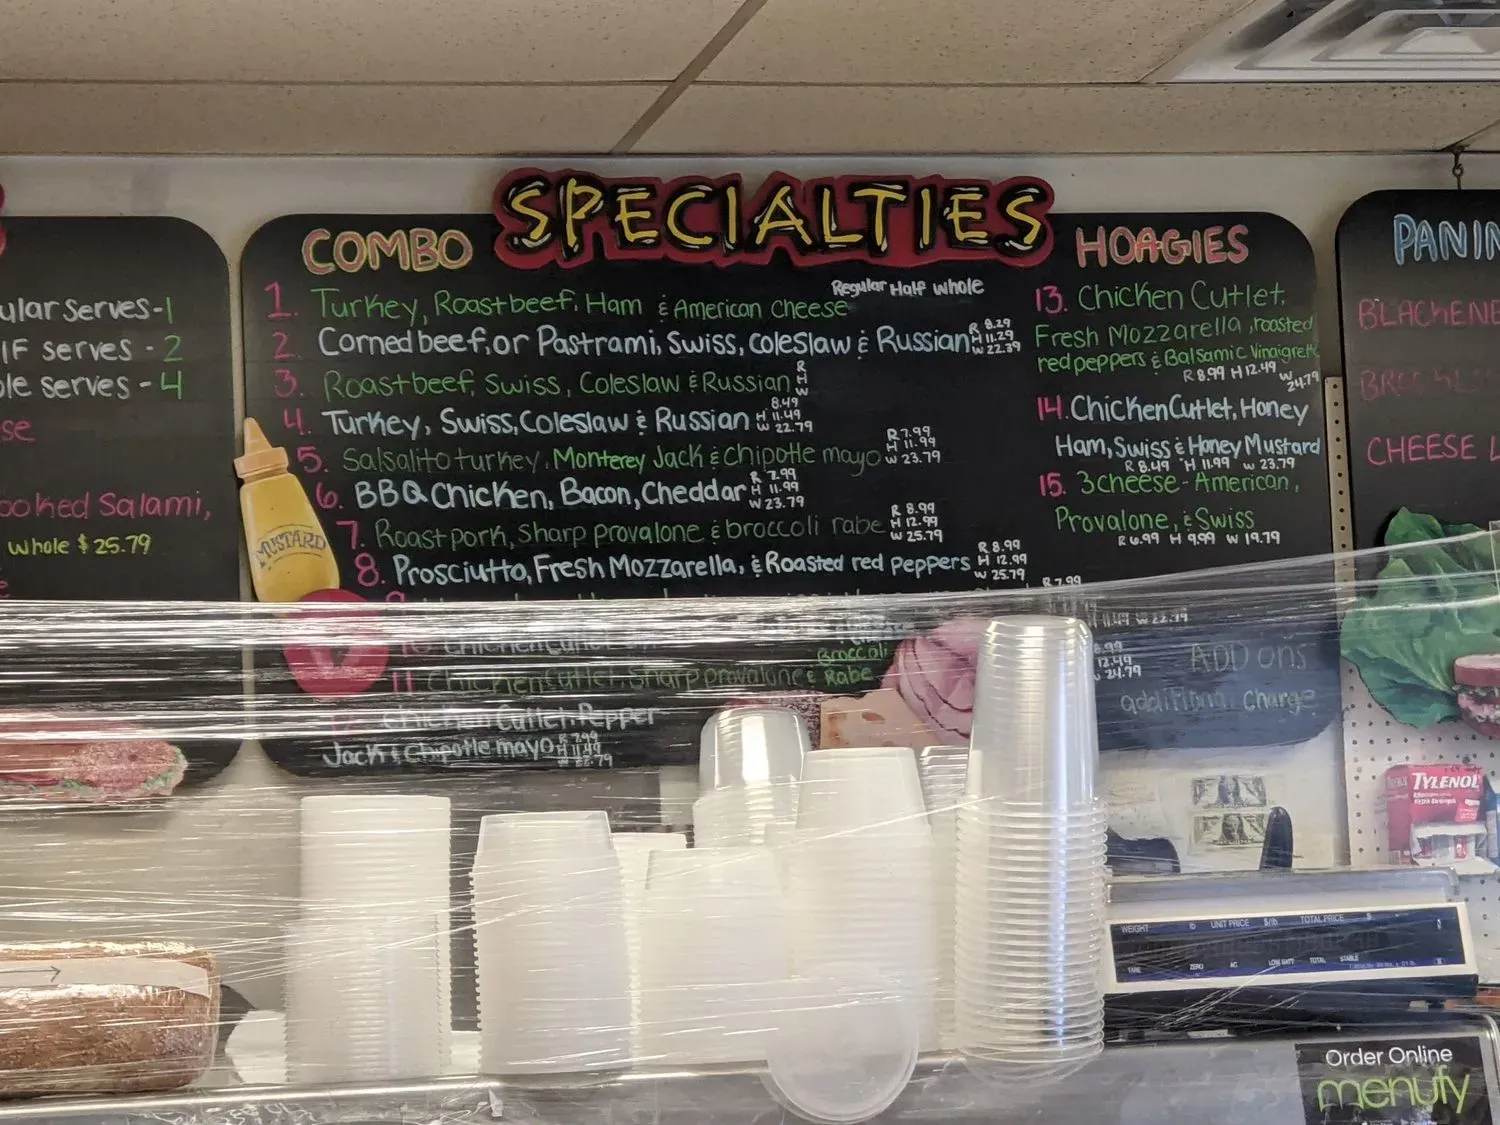 SPECIALTIES
COMBO
Regular Half Whole
1. Turkey, Roastbeef, Ham & American Cheese
2. Corned beef, or Pastrami, Swiss, coleslaw & Russian
R 8.29
H 11.29
W 22.39
3. Roastbeef, Swiss, Coleslaw & Russian
R
H
W
4. Turkey, Swiss, Coleslaw & Russian
8.49
H 11.49
W 22.79
5. Salsalito turkey, Monterey Jack & chipotle mayo
R 7.99
H 11.99
W 23.79
6. BBQ Chicken, Bacon, Cheddar
R 7.99
H 11.99
W 23.79
7. Roast pork, Sharp provalone & broccoli rabe
R 8.99
H 12.99
W 25.79
8. Prosciutto, Fresh Mozzarella, & Roasted red peppers
R 8.99
H 12.99
W 25.79
R 7.99
H 11.49 W 22.79
10. Chicken Cutlet
Broccoli
11. Chicken Cutlet, Sharp provalone & Rabe
8.99
12.49
W 24.79
Chicken Cutlet, Pepper
Jack & Chipotle mayo
R 7.99
H 11.49
W 22.79
HOAGIES
13. Chicken Cutlet,
Fresh Mozzarella, roasted
red peppers & Balsamic Vinaigrette
R 8.99 H 12.49 W 24.79
14. Chicken Cutlet, Honey
Ham, Swiss & Honey Mustard
R 8.49 H 11.99 W 23.79
15. 3 cheese - American,
Provalone, & Swiss
R 6.99 H 9.99 W 19.79
ADD ons
additional charge
ular Serves - 1
F serves - 2
le serves - 4
se
ooked Salami,
whole $25.79
MUSTARD
PANIN
BLACKENE
CHEESE L
TYLENOL
WEIGHT lb UNIT PRICE $/lb TOTAL PRICE $
TARE ZERO AC LOW BATT TOTAL STABLE
Order Online
menufy